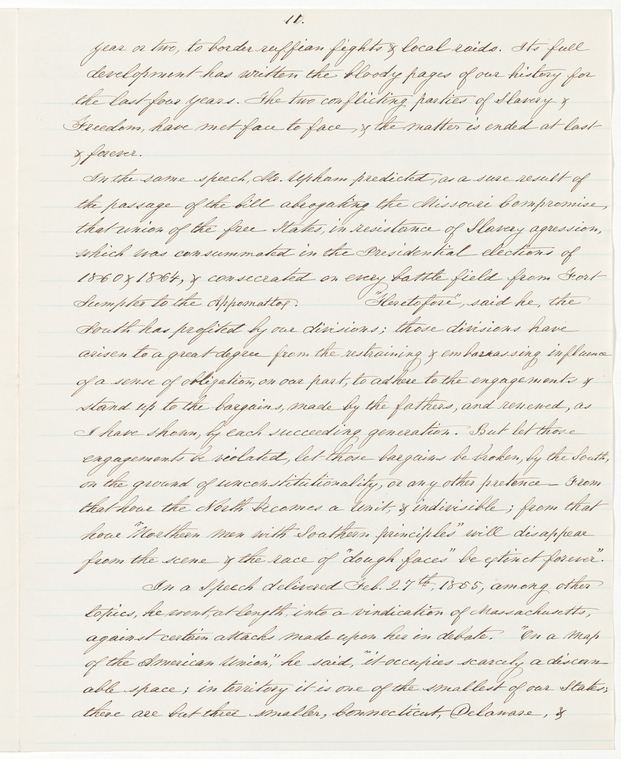 11.
year or two, to border ruffian fights & local raids. Its full
development has written the bloody pages of our history for
the last four years. The two conflicting parties of Slavery &
Freedom, have met face to face, & the matter is ended at last
& forever.
In the same speech, Mr. Upham predicted, as a sure result of
the passage of the bill abrogating the Missouri Compromise,
that union of the free States, in resistance of Slavery agression,
which was consummated in the Presidential elections of
1860 & 1864, & consecrated on every battle field from Fort
Sumpter to the Appomattox. "Heretofore", said he, the
South has profited by our divisions; those divisions have
arisen to a great degree from the restraining & embarrassing influence
of a sense of obligation, on our part, to adhere to the engagements &
stand up to the bargains, made by the fathers, and renewed, as
I have shown, by each succeeding generation. But let those
engagements be violated, let those bargains be broken, by the South,
on the ground of unconstitutionality, or any other pretence — From
that hour the North becomes a unit, & indivisible; from that
hour "Northern men with Southern principles" will disappear
from the scene & the race of "dough faces" be extinct forever".
In a Speech delivered Feb. 27th, 1855, among other
topics, he went, at length, into a vindication of Massachusetts,
against certain attacks made upon her in debate. "On a map
of the American Union," he said, "it occupies scarcely a discern-
able space; in territory it is one of the smallest of our States;
there are but three smaller, Connecticut, Delaware, &